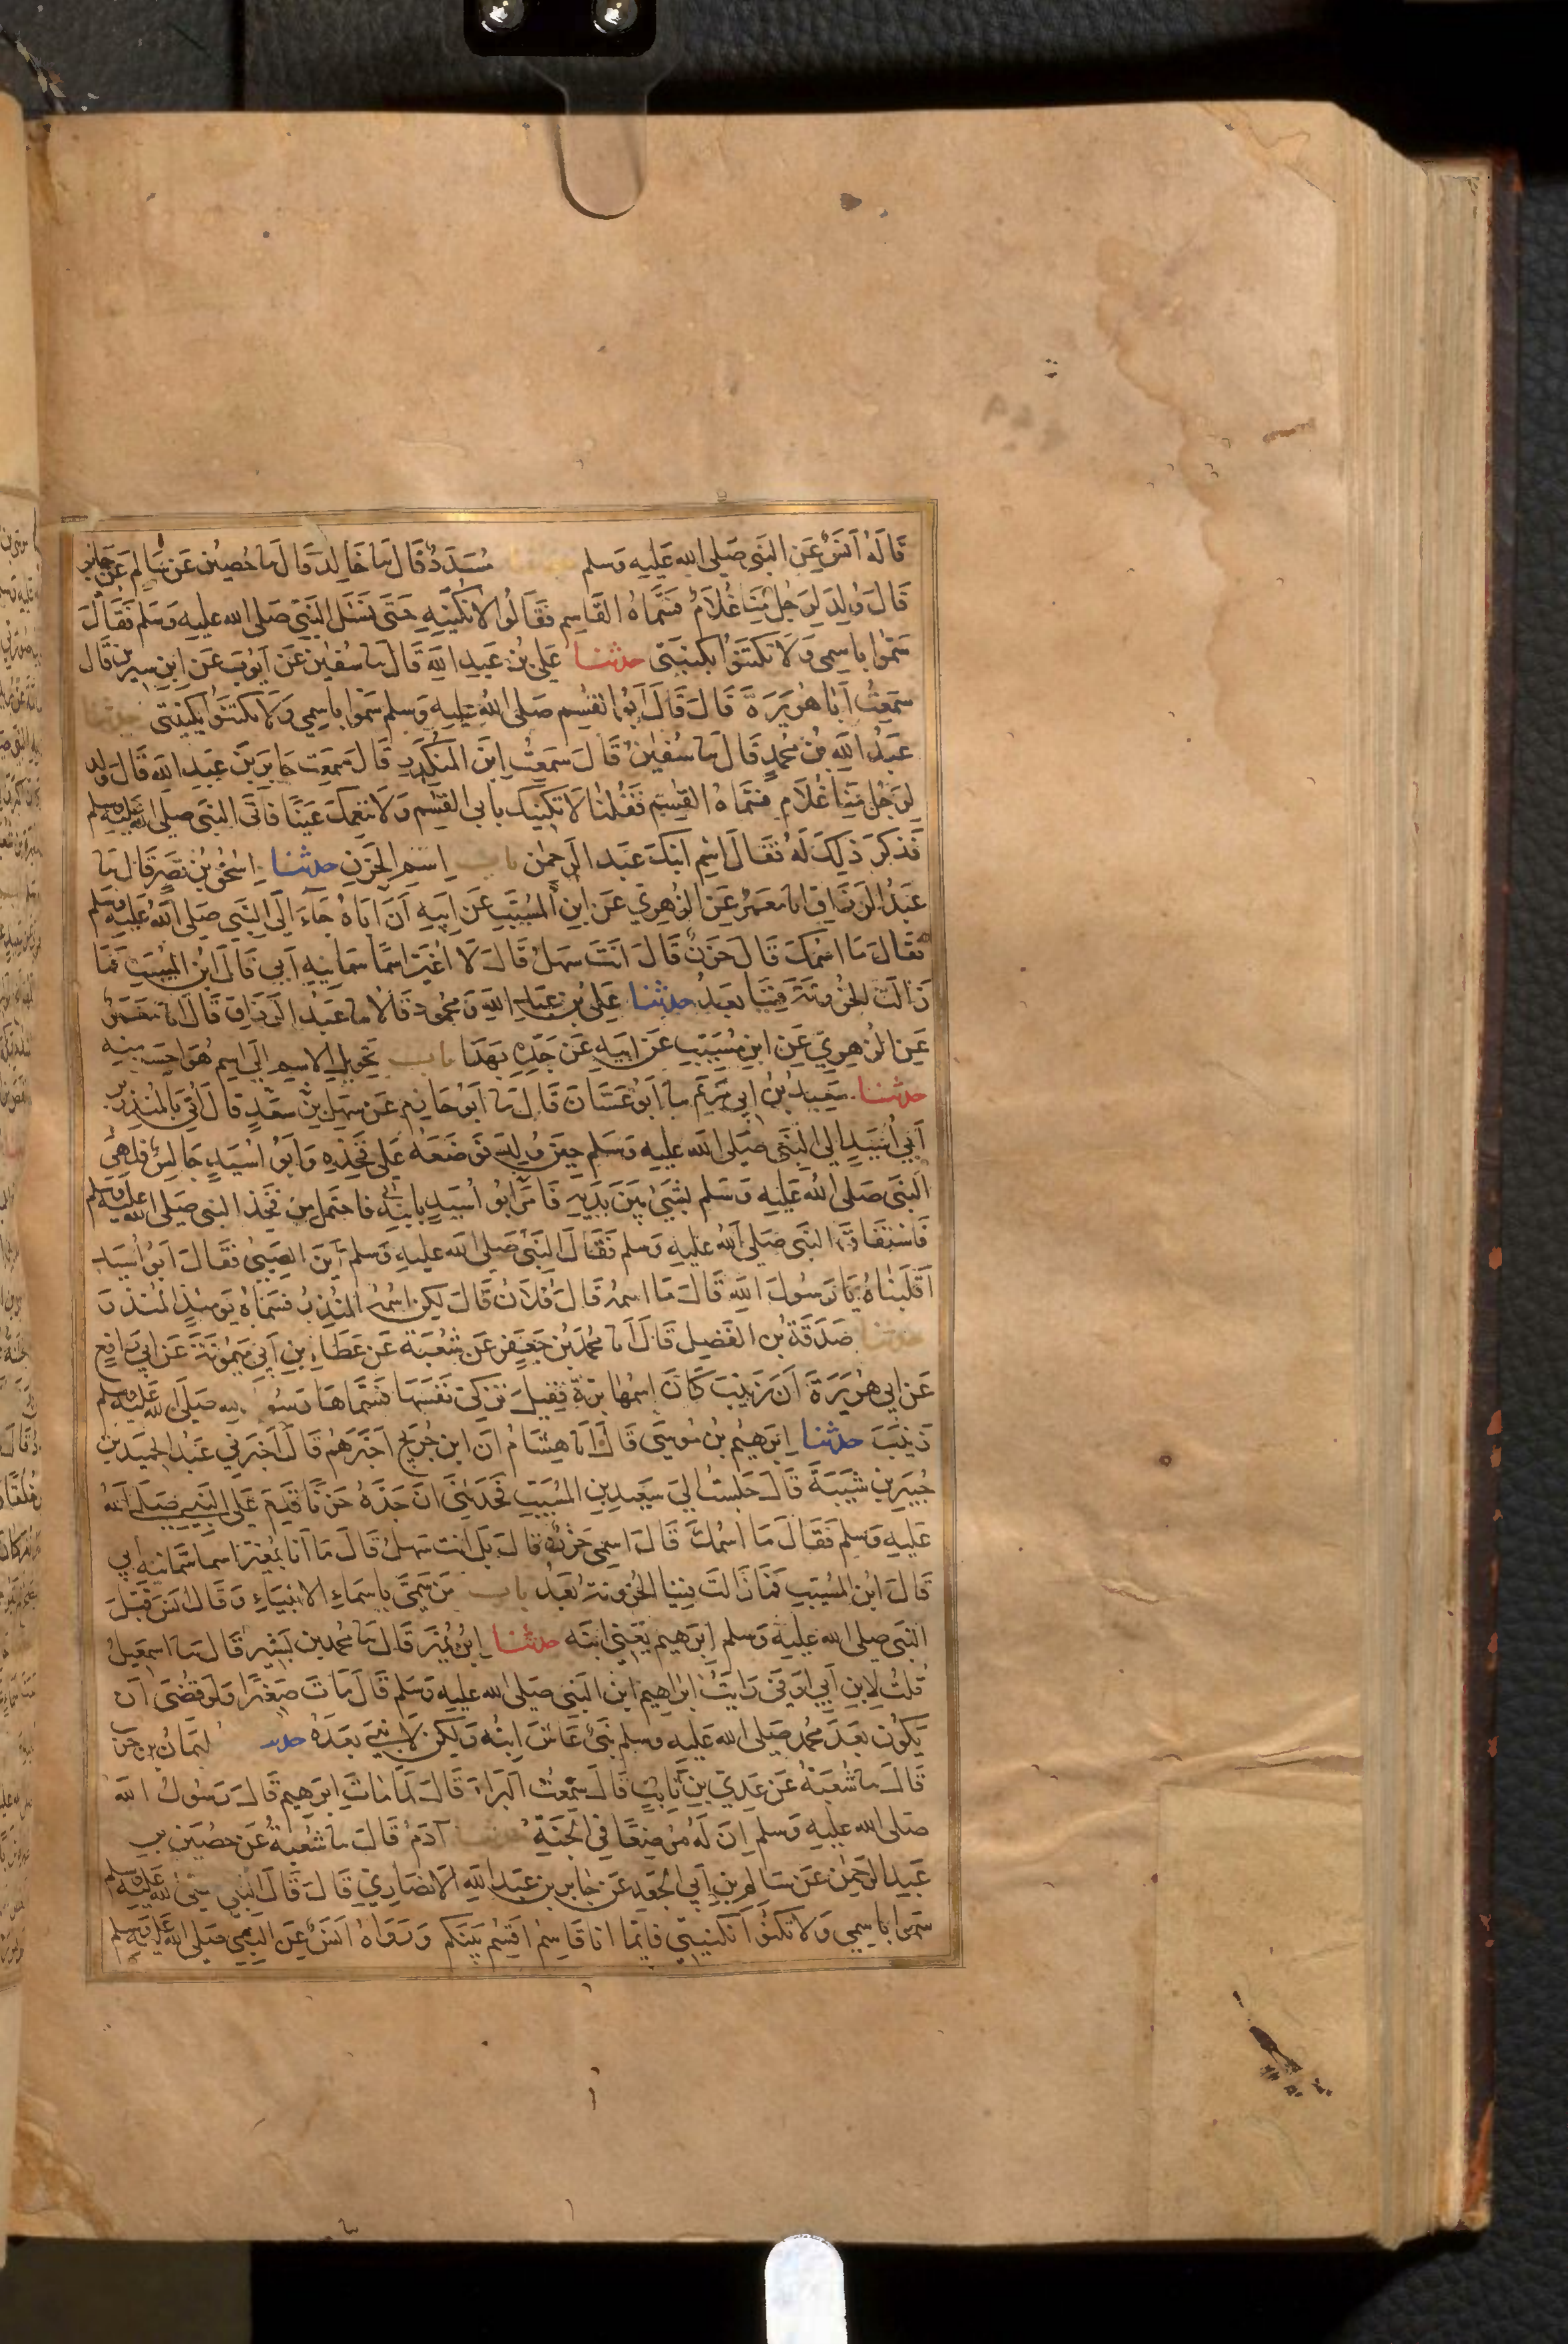 قَالَهُ اَنَسٌ عَنِ النَبِى صَلى الله عَليهِ وَسلم مُسَدَدٌ قَالَ نا خَالِد قَالَ نا حُصَيْن عَن سَالم عَن جَابِر
قَالَ وُلِدَ لِرَجُلٍ مِنَّا غُلَامٌ فسَمَّاهُ القَاسِم فقَالُوا لا نَكْنيهِ حَتَى نَسْئَل النَبِىَّ صَلى الله عليهِ وَسَلم فَقَالَ
سَمُّوا باسِمى وَلَا تَكتَنُوا بِكنيَتِى حدثنا عَلى بن عَبدِ اللهِ قَالَ نا سُفيٰن عَن اَيُوبَ عَنِ ابنِ سِيرِين قَال
سَمِعتُ اَبَا هُرَيرَةَ قَالَ قَالَ اَبُو القٰسِم صَلى اللهُ عَليهِ وَسلم سَمّوا باسِمي وَلَا تكتَنُوا بكنيَتِى حدثنا
عَبدُ اللهِ بن محُمدٍ قَالَ نا سُفيٰن قَالَ سَمِعتُ ابنَ المنكَدِرِ قَالَ سَمِعت جَابِرَ بنَ عَبدِ الله قَالَ وُلِد
لِرَجُلٍ مِنا غُلَام فسَمَّاهُ القٰسِم فَقُلنَا لَا نَكنِيك بابى القٰسِم وَلَا ننعِمكَ عَينًا فَاتَى النبَى صلى الله عليه وسلم
فَذكَرَ ذلِكَ لَهُ فَقَالَ اسْمِ ابنَكَ عَبدَ الرحمٰن باب اسم الحَزنِ حدثنا اِسحٰق بن نَصرٍ قَالَ نا
عَبدُ الرَزاقِ انا مَعمَرٌ عَنِ الزهرِي عَن ابنِ المسَيَّبِ عَن ابيهِ اَنَّ اَبَاهُ جَاءَ اِلَى النَبِي صَلى الله عَليهِ وسلم
فقَالَ مَا اسْمكَ قَالَ حَزنٌ قَالَ اَنتَ سَهلٌ قَالَ لَا اُغَيّر اسمًا سَمانيهِ اَبي قَالَ ابن المسَيب فَمَا
زَالَت الحزُونَة فِينَا بَعدُ حدثنا عَلى بن عَبدِ الله وَمحمُود قَالا نا عَبدُ الرَزاقِ قَالَ انا مَعمَرٌ
عَنِ الزُهرِيّ عَنِ ابنِ مُسَيَّب عَن ابيهِ عَن جَدِهِ بهَذَا باب تحَوِيلِ الاسم اِلَى اسمٍ هُوَ احسَن منه
حدثنا سَعِيدُ بنُ ابى مَريَم نا اَبُو غَسَّانَ قَالَ نا اَبُو حَازِم عَن سَهلِ بن سَعدٍ قَالَ اُتِيَ بالمُنذِر بن
اَبي اُسَيدٍ اِلَى النَبِى صَلى الله عليهِ وَسلم حِينَ وُلِدَ فَوَضَعَهُ عَلى فَخِذِهِ وَابُو اُسَيدٍ جَالِسٌ فَلَهىَ
النَبَى صَلى الله عَليهِ وَسَلم بشَيْئٍ بَينَ يَدَيهِ فَامَرَ ابُو اُسَيدٍ بابنِهِ فاحتمل مِن فَخِذ النبى صَلى الله عليه وسلم
فَاستَفَاقَ النَبى صَلى الله عَليهِ وَسلم فَقَالَ النَبَى صَلى الله عليهِ وَسلم اَينَ الصَبِىّ فَقَالَ ابُو اُسَيد
اَقلَبنَاهُ يَا رَسُولَ اللهِ قَالَ مَا اسمُهُ قَالَ فُلَان قَالَ لكِن اسمُهُ المُنذِرُ فسَمَاهُ يَومَئِذٍ المُنذِرَ
حدثنا صَدَقَةُ بن الفَضلِ قَالَ انا محُمَّد بنُ جَعفَرٍ عَن شُعبَةَ عَن عَطاءِ بن اَبى مَيمُونَةَ عَن اَبي رَافِع
عَن ابي هُرَيرَةَ اَنَ زَينَبَ كَانَ اسمُهَا بَرّةَ فَقِيلَ تُزكى نَفسَهَا فسَمَّاهَا رَسُو الله صَلى الله عليه وسلم
زَينَبَ حدثنا اِبرَهيمُ بن مُوسَى قَالَ اَنا هِشَامُ اَن ابن جُرَيج اخبَرَهُم قَالَ اَخبَرَني عَبدُ الحميد بن
جُبَيرِ بن شَيبَةَ قَالَ جَلَستُ اِلىَ سَعيدِ بن المسَيَّب فحَدَثنِى اَنَ جَدَهُ حَزنًا قَدِمَ عَلى النَبِى صَلى الله
عَليهِ وسلم فَقَالَ مَا اسْمُكَ قَالَ اسمِى حَزنٌ قَالَ بَل اَنتَ سَهلٌ قَالَ مَا اَنَا بمُغَيّرٍ اسما سَمَّانِيه ابي
قَالَ ابن المسَيّب فَمَا زَالَت فِينَا الحُزُونَةُ بَعدُ باب مَن سَمَّى باسمَاءِ الانبيَاءِ وَقَالَ انَس قَبَّلَ
النَبَى صلى الله عليهِ وَسلم اِبرَهيم يَعنى ابنَه حدثنا ابنُ نُمَير قَالَ نا محُمد بن بَشرٍ قَالَ نا اسمٰعِيلُ
قُلتُ لِابنِ اَبِي اَوفَى رَايتَ اِبرَاهيمَ ابنَ النَبى صَلى الله عليهِ وَسلم قَالَ مَاتَ صَغيرًا وَلو قضَى اَن
يَكُونَ بَعدَ محُمد صَلى الله عَليهِ وسلم نَبَىٌ عَاشَ ابنُه وَلكِن لَا نَبِىَّ بَعدَهُ حدثنا ليمَانُ بن حَربٍ
قَالَ نا شُعبَةُ عَن عَدِيّ بن ثابِتٍ قَالَ سَمِعتُ البَراءَ قَالَ لَمَّا مَاتَ اِبرَهيم قَالَ رَسُولُ الله
صَلى الله عليهِ وسلم اِنَ لَهُ مُرضِعًا في الجَنَةِ حدثنا آدَمُ قَالَ نا شُعبةُ عَن حُصَين بن
عَبدِ الرحمن عَن سَالِم بن اَبى الجَعدِ عَن جَابِر بن عَبدِ اللهِ الانصَارِيّ قَالَ قَالَ النبى صلى الله عليه وسلم
سَموا باسمِى وَلا تكتَنُوا بكنيَتِي فانما انا قَاسِمٌ اَقسِمُ بَينَكم وَرَوَاهُ اَنَسٌ عَنِ النَبىّ صَلى الله عليه وسلم